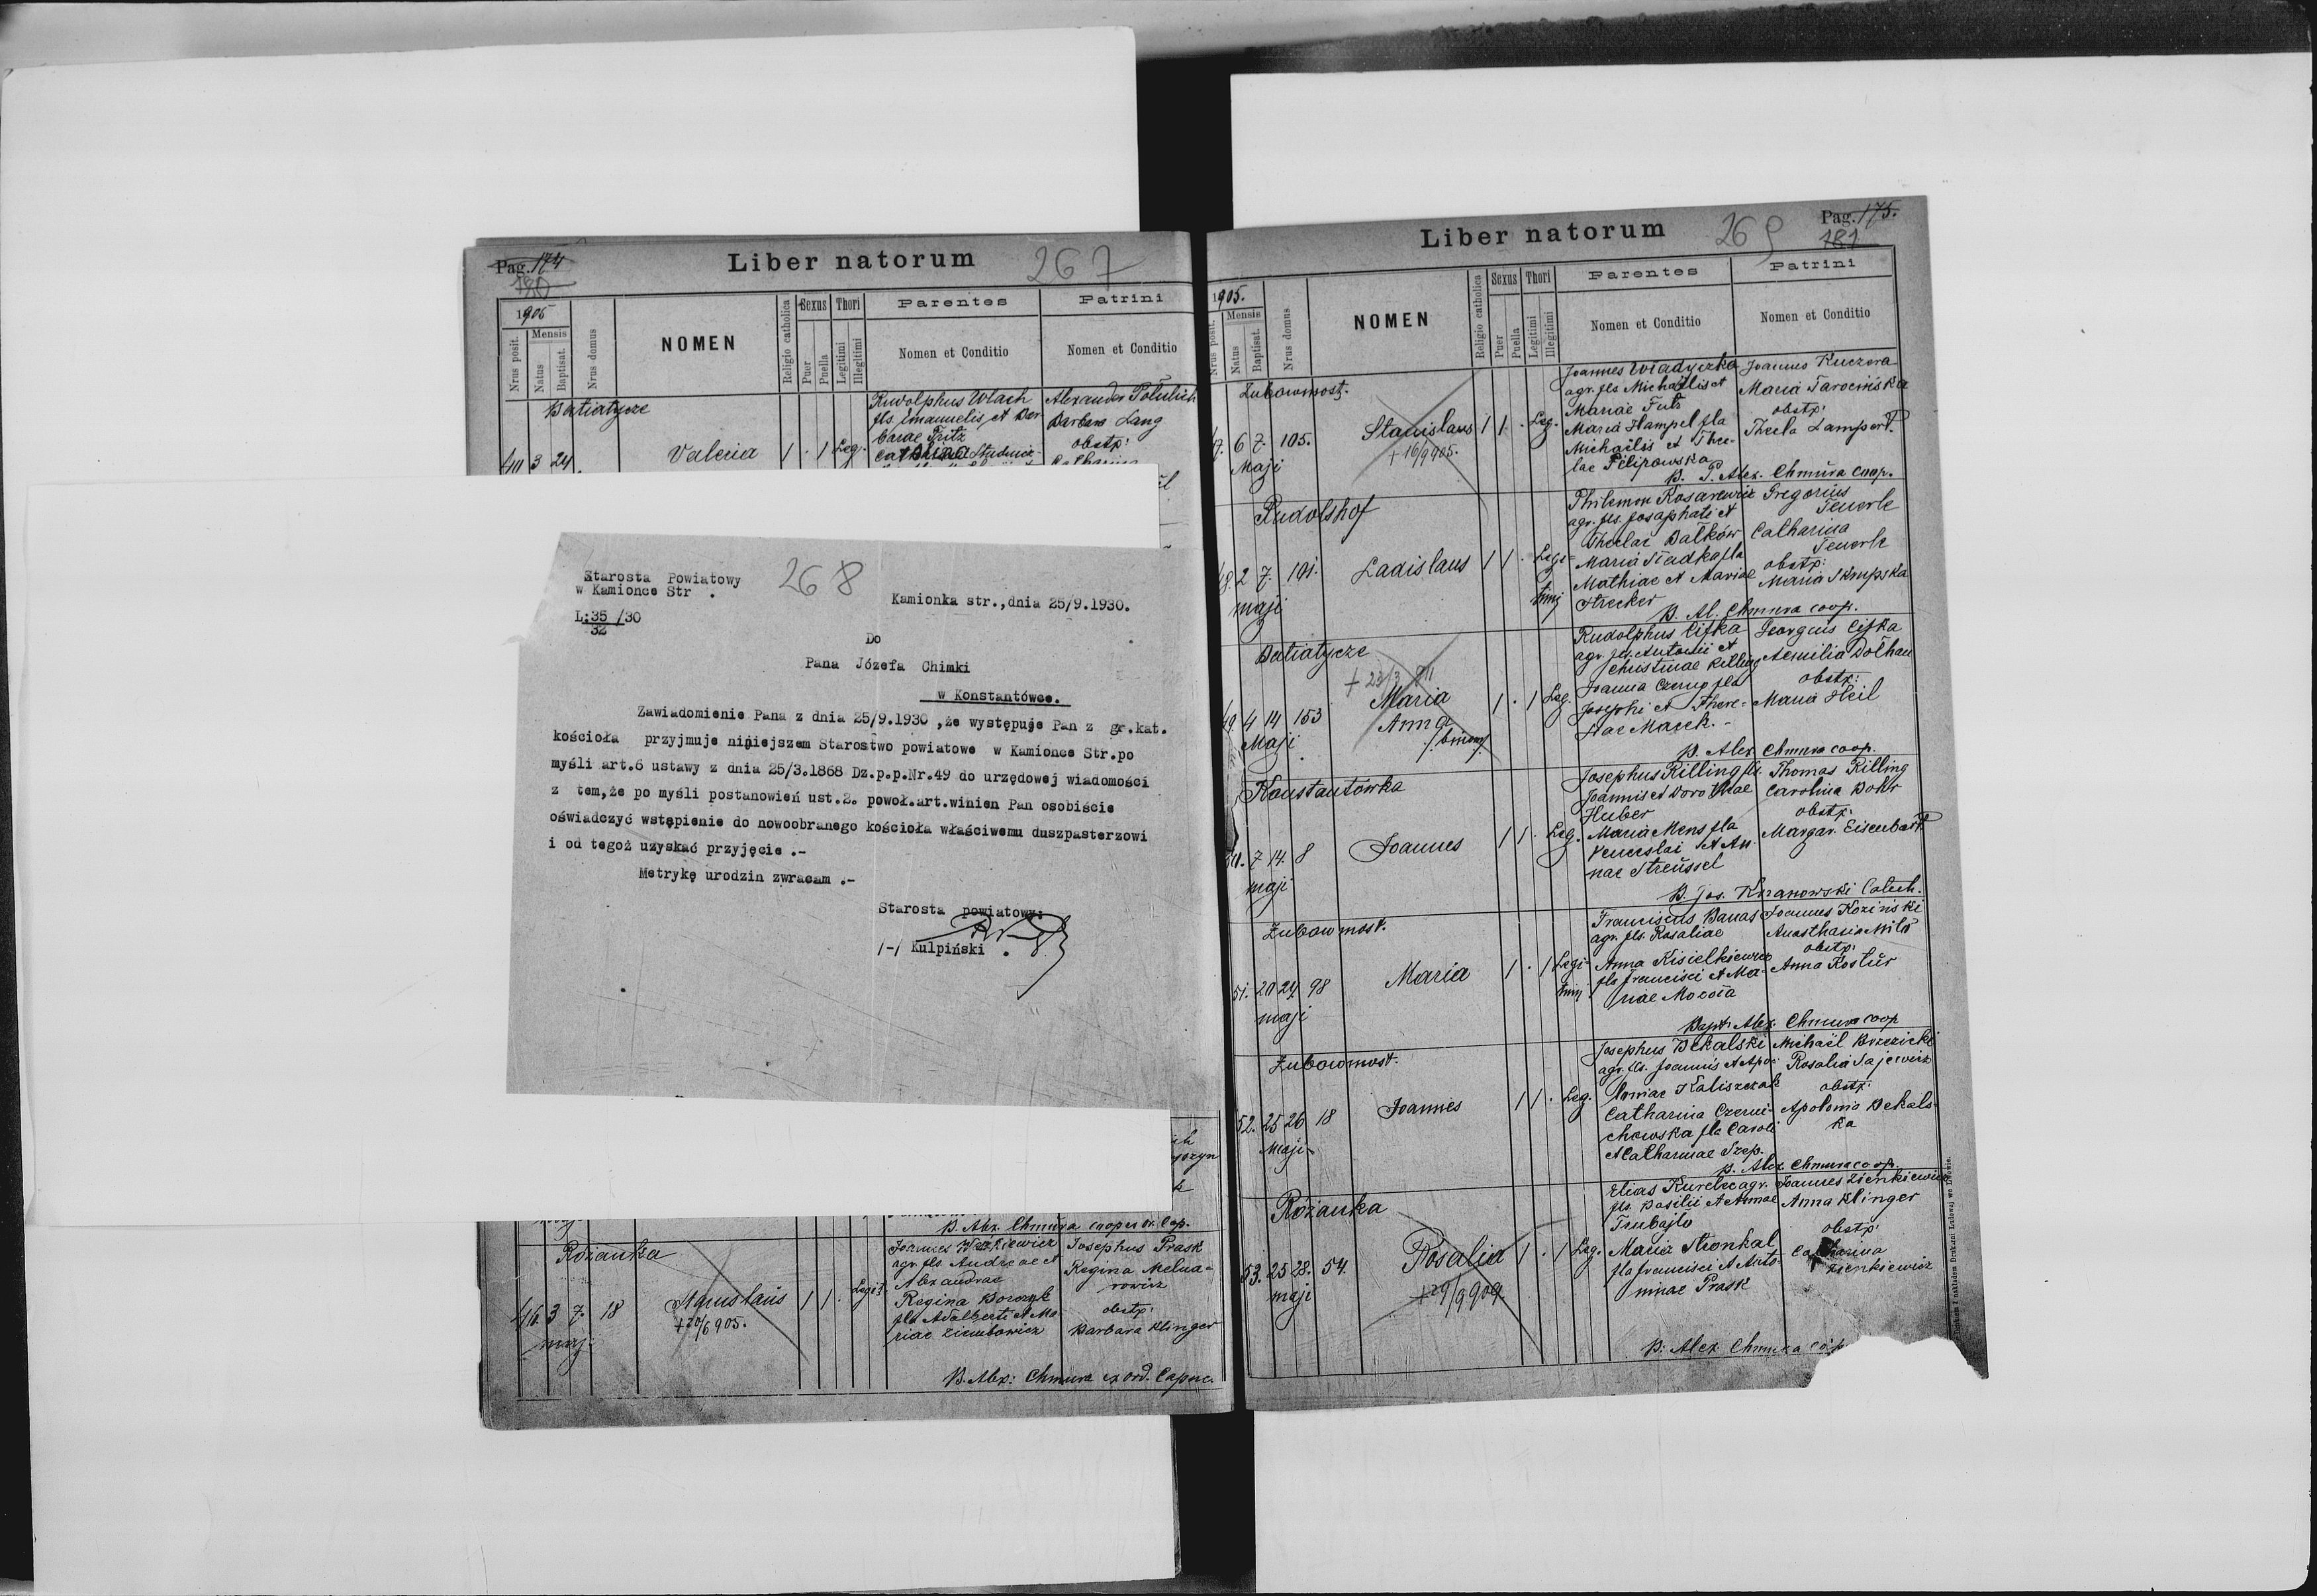 Pag. 174
180
Liber natorum
267
1905
Mensis
Nrus posit.
Natus
Baptisat.
Nrus domus
NOMEN
Religio catholica
Sexus
Puer
Puella
Thori
Legitimi
Illegitimi
Parentes
Nomen et Conditio
Patrini
Nomen et Conditio
Batiatycze
Valeria 1 . 1 Leg.
3 24
Rudolphus Wlach
fls. Emanuelis et Bar
barae Fritz
Alexander
Barbara Lang
obstp:
Catharina
Starosta Powiatowy
w Kamionce Str .
268
L:35/30
32
Kamionka str.,dnia 25/9.1930.
Do
Pana Józefa Chimki
w Konstantówce.
Zawiadomienie Pana z dnia 25/9.1930 ,że występuje Pan z gr.kat.
kościoła przyjmuje niniejszem Starostwo powiatowe w Kamionce Str.po
myśli art.6 ustawy z dnia 25/3.1868 Dz.p.p.Nr.49 do urzędowej wiadomości
z tem,że po myśli postanowień ust.2. powoł.art.winien Pan osobiście
oświadczyć wstąpienie do nowoobranego kościoła właściwemu duszpasterzowi
i od tegoż uzyskać przyjęcie .-
Metrykę urodzin zwracam .-
Starosta powiatowy:
/-/ Kulpiński .
B. Alex. Chmura
Rożanka
46. 3 7. 18
maj.
Stanislaus
+20/6 905.
1 1 . Legit.
agr. fls. Andreae et
Alexandrae
Regina
fla Adalberti et Ma
riae Ziembowicz
Josephus Prask
Regina Melna-
rowicz
obstp:
Barbara Klinger
B. Alex: Chmura ex ord. Capuc.
Liber natorum
269
Pag. 175.
181
1905.
Mensis
Nrus posit.
Natus
Baptisat.
Nrus domus
NOMEN
Religio catholica
Sexus
Puer
Puella
Thori
Legitimi
Illegitimi
Parentes
Nomen et Conditio
Patrini
Nomen et Conditio
Zubowmost.
6 7. 105.
Maji
Stanislaus
+16/9 905.
1 1 . Leg.
Joannes Władyczka
agr. fls Michaëlis et
Mariae Futs
Maria Hampel fla
Michaëlis et The-
lae Filipowska
Joannes Kuczera
Maria Tarocińska
obstp:
Thecla Lampert.
B. P. Alex. Chmura coop.
Rudolshof
2 7. 101.
maji
Ladislaus
1 1 . Legi-
timi
Philemon Kosarewicz
agr. fls. Josaphati et
Theclae Bałków
Maria Sładka fla
Mathiae et Mariae
Strecker
Gregorius
Feuerle
Catharina
Feuerle
obstp:
Maria Skrupska
B. Al. Chmura coop.
Batiatycze
4 14 153
Maji
Maria
Anna
1 . 1 Leg.
Rudolphus Cifka
agr. fls. Antonii et
Christinae Killing
Joanna Czerny fla
Josephi et There-
siae Marek. -
Georgius Cifka
Aemilia Dołhan
obstp:
Maria Heil
B. Alex. Chmura coop.
Konstantówka
7 14. 8
maji
Joannes
1 1 . Leg.
Josephus Rilling fls.
Joannis et Dorotheae
Huber
Maria Mens fla
Venceslai et An-
nae Streüssel
Thomas Rilling
Carolina Bohr
obstp:
Margar. Eisenbart
B. Jos. Knanowski Catech.
Zubowmost.
51. 20 24 98
maji
Maria
1 . 1 Legi-
timi
Franciscus Banas
agr. fls. Rosaliae
Anna Kisielkiewicz
fla Francisci et Ma-
riae Mozoła
Joannes Koziński
Anasthasia Miło
obstp:
Anna Kostür
Bapt: Alex. Chmura coop
Zubowmost.
52. 25 26 18
Maji
Joannes
1 1 . Leg.
Josephus Dekalski
agr. fls. Joannis et Apo-
loniae Kaliszczak
Catharina Czerni-
chowska fla Caroli
et Catharinae Szep.
Michaël Brzezicki
Rosalia Sajewicz
obstp:
Apolonia Dekals-
ka
B. Alex. Chmura coop.
Rożanka
53. 25 28. 54.
maji
Rosalia
+29/9 909.
1 . 1 Leg.
fls. Basilii et Annae
Trubajło
Maria Stronkal
fla Francisci et Anto-
ninae Prask
Joannes Zienkiewicz
Anna Klinger
obstp:
Catharina
Zienkiewicz
B: Alex Chmura